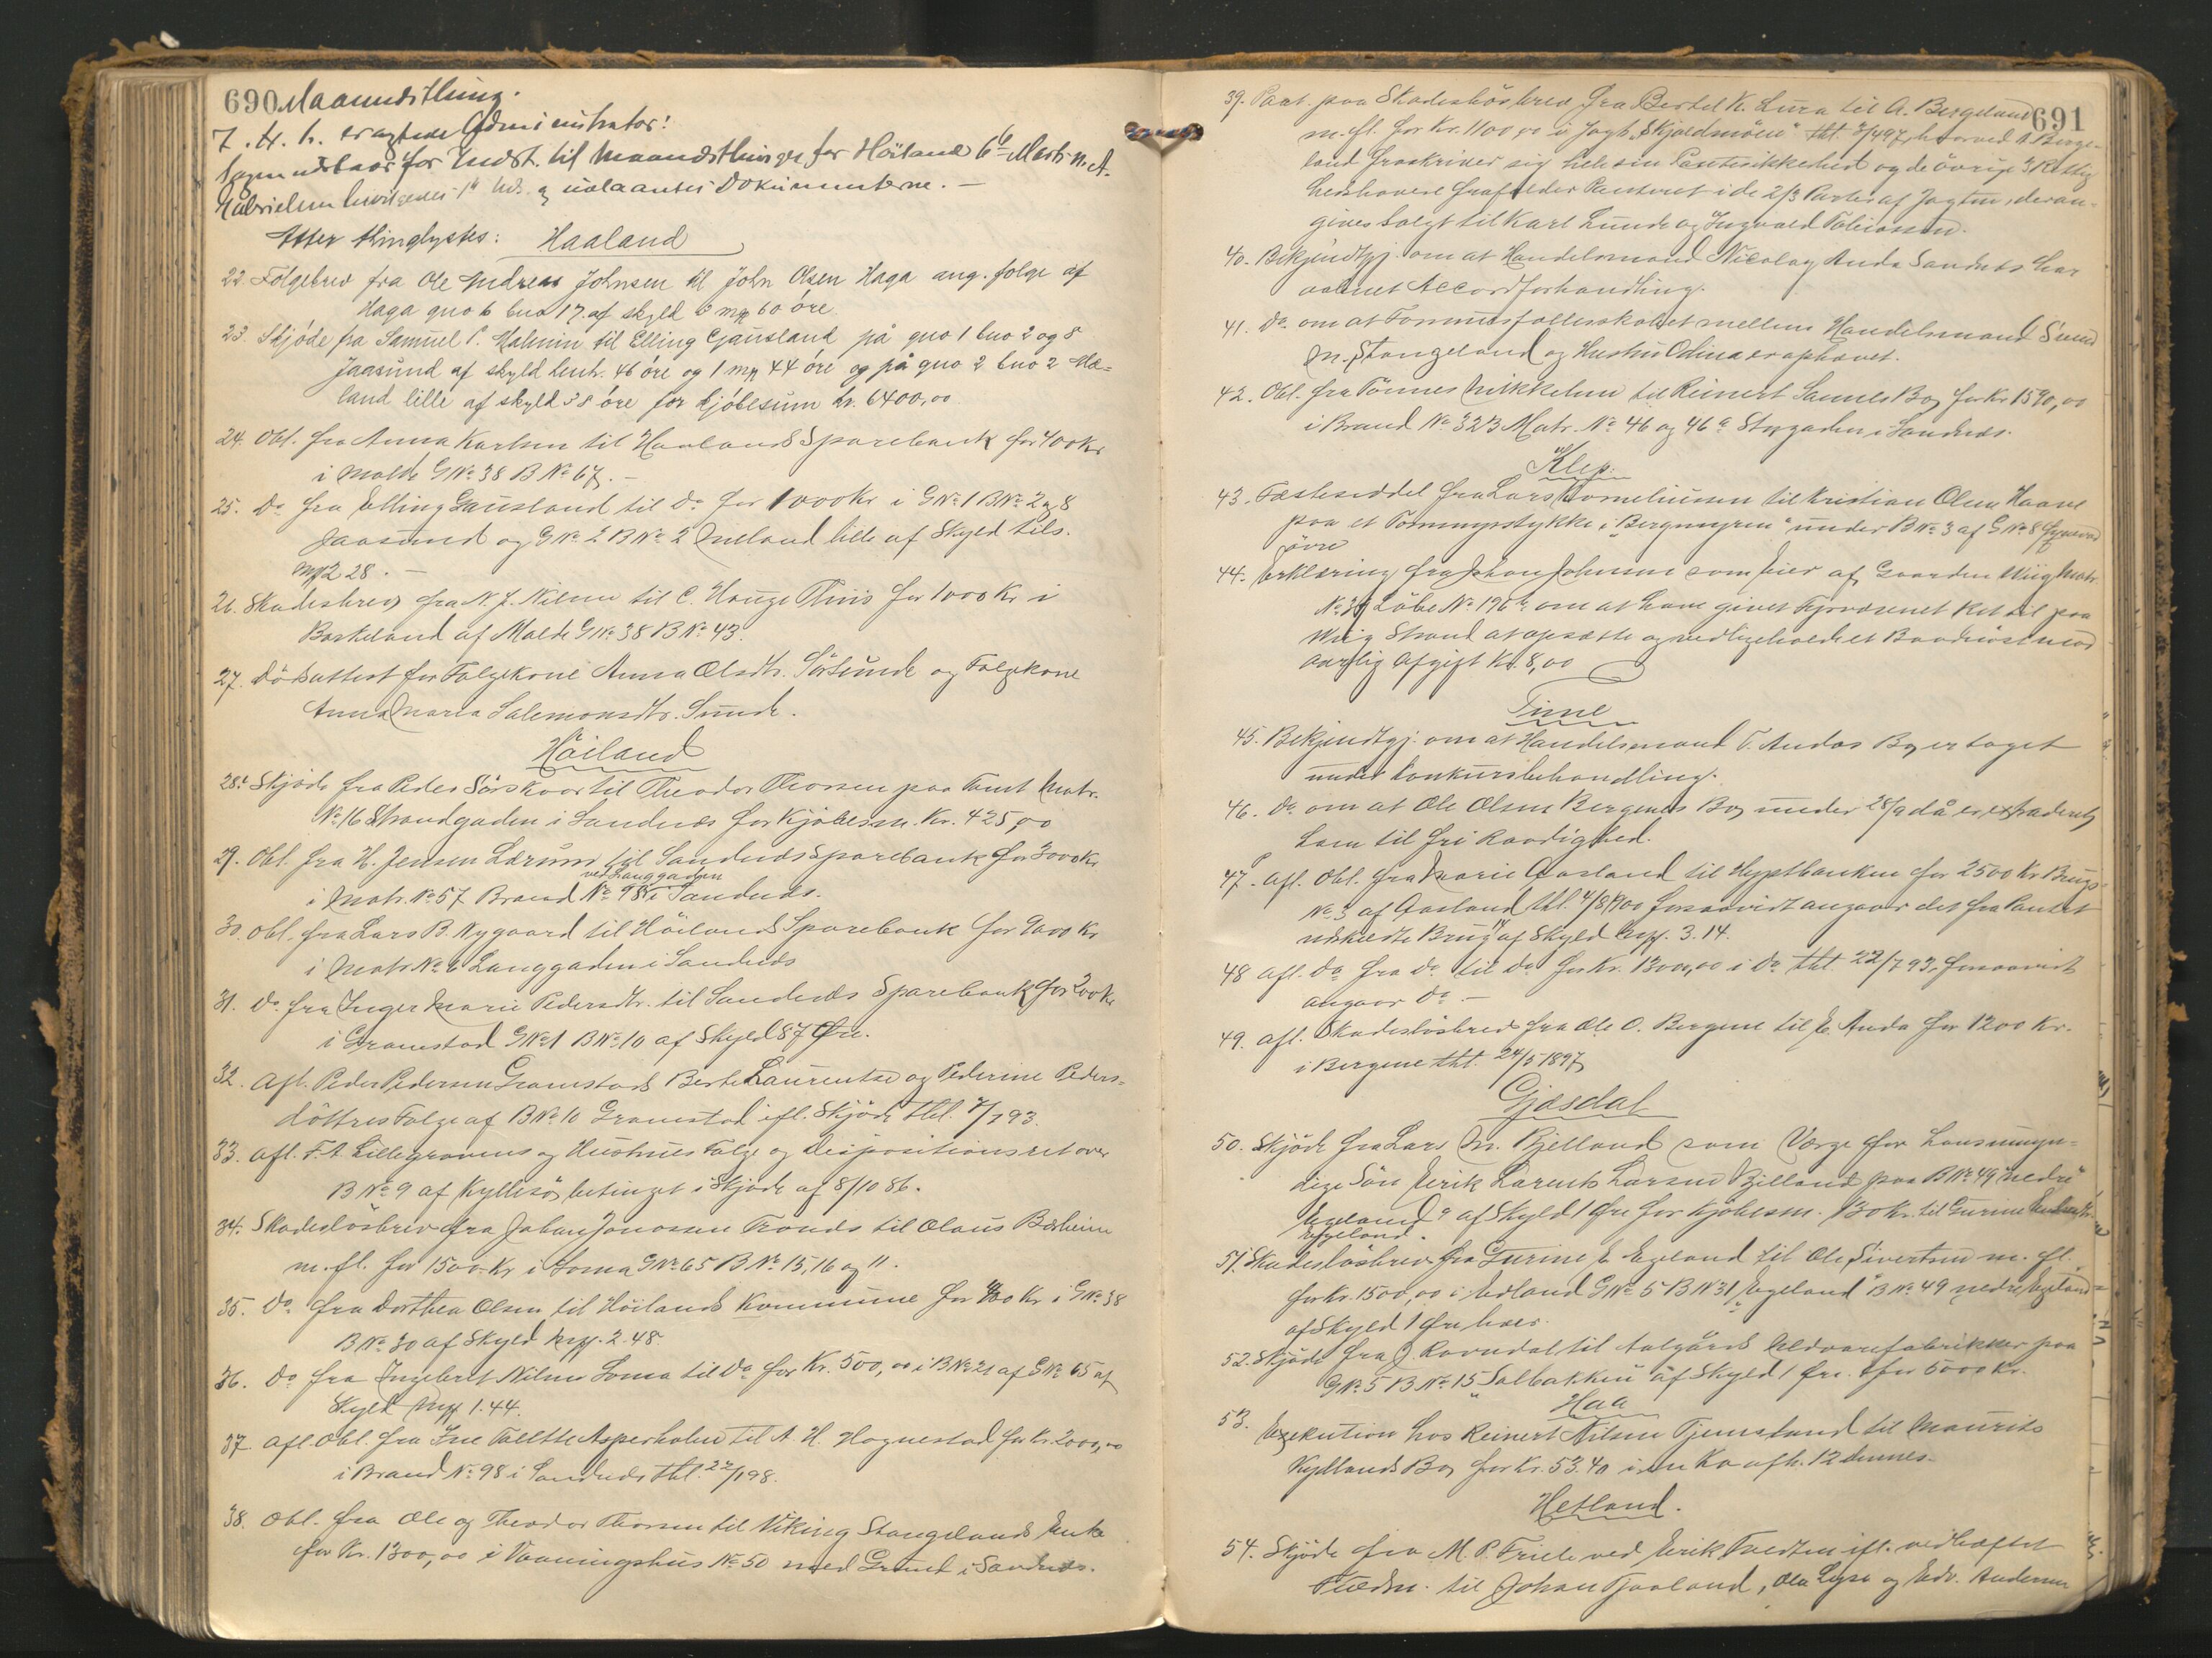 690 Maanedsthing.
7. H. h.
for Höiland 6te M. A.
Gabrielsen 1ste og Dokumenterne. —
Atter thinglystes: Haaland
22. Folgebrev fra Ole Andreas Johnsen til John Olsen Haga ang. folge af
Haga gno 6 bno 17 af skyld 6 mrk 60 öre
23. Skjöde fra Samuel P. Malmin til Elling Gausland på gno 1 bno 2 og 8
Jaasund af skyld henh. 46 öre og 1 mrk 44 öre og på gno 2 bno 2 Mæ-
land lille af skyld 38 öre for kjöbesum kr. 6400,00
24. Obl. fra Anna Karlsen til Haalands Sparebank for 400 kr
i Molde GNo 38 BNo 67. —
25. Do fra Elling Gausland til do for 1000 Kr i GNo 1 BNo 2 og 8
Jaasund og GNo 2 BNo 2 Meland lille af Skyld tils.
Mrk 2 28. —
26. Skadesbrev fra N. J. Nilsen til C. Houge Thiis for 1000 Kr i
Barkeland af Molde GNo 38 BNo 43.
27. Dödsattest for Folgekone Anna Olsdtr. Sörsunde og Folgekone
Anna Maria Salemonsdtr. Sunde.
Höiland
28. Skjöde fra Peder Sörskaar til Theodor Thorsen paa Tomt Matr.
No 16 Strandgaden i Sandnæs for Kjöbesum Kr. 425,00
29. Obl. fra H. Jensen Lærum til Sandnæs Sparebank for 3000 Kr
ved Langgaden
i Matr. No 57 Brand No 98 i Sandnæs.
30. Obl. fra Lars B. Nygaard til Höilands Sparebank for 9000 Kr
i Matr No 6 Langgaden i Sandnæs
31. Do fra Inger Marie Pedersdtr. til Sandnæs Sparebank for 200 Kr
i Gramstad GNo 1 BNo 10 af Skyld 87 Öre.
32. Afl. Peder Pedersen Gramstads Berte Laurentse og Pederine Peders-
döttres Folge af BNo 10 Gramstad ifl. Skjöde thl. 7/7 93.
33. Afl. F. A. Lillegravens og Hustrues Folge og Dispositionsret over
BNo 9 af Kyllesö betinget i Skjöde af 8/10 86.
34. Skadeslösbrev fra Johan Jonassen Tronds til Olaus Bærheim
m. fl. for 1500 Kr i Soma GNo 65 BNo 15, 16 og 11.
35. Do fra Dorthea Olsen til Höilands Kommune for 400 Kr i GNo 38
BNo 30 af Skyld Mrk. 2.48.
36. Do fra Ingebret Nilsen Soma til Do for Kr. 500,00 i BNo 21 af GNo 65 af
Skyld Mrk 1.44.
37. Afl. Obl. fra Asperholm til A. H. Hognestad for Kr. 2000,00
i Brand No 98 i Sandnæs thl. 22/1 98.
38. Obl. fra Ole og Theodor Thorsen til Viking Stangelands Enke
for Kr. 1300,00 i Vaaningshus No 50 med Grund i Sandnæs.
691
39. Paat. paa Skadeslösbrev fra Bertel K. Lura til A. Bergeland
m. fl. for Kr. 1100,00 i Jagt „Skjoldmöen" tht 8/4 97, hvorved A Berge-
land fraskriver sig hele sin Pantesikkerhed og de övrige 3 Rettig-
hedshavere frafalder Panteret i de 2/3 Parter af Jagten, der an-
gives solgt til Karl Lunde og Ingvald Tobiassen.
40. Bekjendtgj. om at Handelsmand Nicolay Anda Sandnæs har
aabnet Accordforhandling.
41. Do om at Formuesfællesskabet mellem Handelsmand Svend
M. Stangeland og Hustru Odina er ophævet.
42. Obl. fra Tönnes Mikkelsen til Reinert Sannes Bo for Kr 1590,00
i Brand No 323 Matr. No 46 og 46a Storgaden i Sandnæs.
Klep.
43. Fæsteseddel fra Lars Korneliussen til Kristian Olsen Haave
paa et Tormyrstykke i „Bergemyren" under BNo 3 af GNo 8
övre
44. Erklæring fra Johan Johnsen som Eier af Gaarden Wiig Matr.
No 29 Löbe No 196a om at have givet Fyrvæsenet Ret til paa
Wiig Strand at opsætte og vedligeholde et Baadnöst mod
aarlig Afgift Kr. 8,00
Time
45. Bekjendtgj. om at Handelsmand T. Andas Bo er taget
under Konkursbehandling.
46. Do om at Ole Olsen Bergenes Bo under 28/9 då er extraderet
ham til fri Raadighed.
47. Afl. Obl. fra Marie Aasland til Hypthbanken for 2500 Kr Brugs-
No 3 af Aasland thl. 4/8 1900 forsaavidt angaar det fra Pantet
udskildte Brug af Skyld Mrk. 3.14.
48 Afl. Do fra do til do for Kr. 1300,00 i Do tht. 22/7 93, forsaavidt
angaar Do. —
49. Afl. Skadeslösbrev fra Ole O. Bergene til E. Anda for 1200 Kr.
i Bergene tht. 24/5 1897
Gjæsdal
50. Skjöde fra Lars M. Bjelland som Værge for Sön
Eirik Larents Larsen Bjelland paa BNo 49 „nedre
Egeland" af Skyld 1 Öre for Kjöbesm. 130 Kr. til Gurine
Egeland.
51. Skadeslösbrev fra Gurine E. Egeland til Ole Sivertsen m. fl.
for Kr. 1500,00 i Edland GNo 5 BN 31 „Egeland" BNo 49 nedre Egeland
af Skyld 1 Öre hver.
52. Skjöde fra J. Ravndal til Aalgårds Uldvarefabrikker paa
GNo 5 BNo 15 „Solbakken" af Skyld 1 Öre for 5000 Kr.
Haa
53. Exekution hos Reinert Nilsen Tjemsland til Maurits
Kyllands Bo for Kr. 53.40 i en Ko afh. 12 dennes.
Hetland.
54. Skjöde fra M. P. Friele ved Eirik Tvedten ifl. vedhæftet
til Johan Tjaaland, Ola Lyse og Edv. Andersen